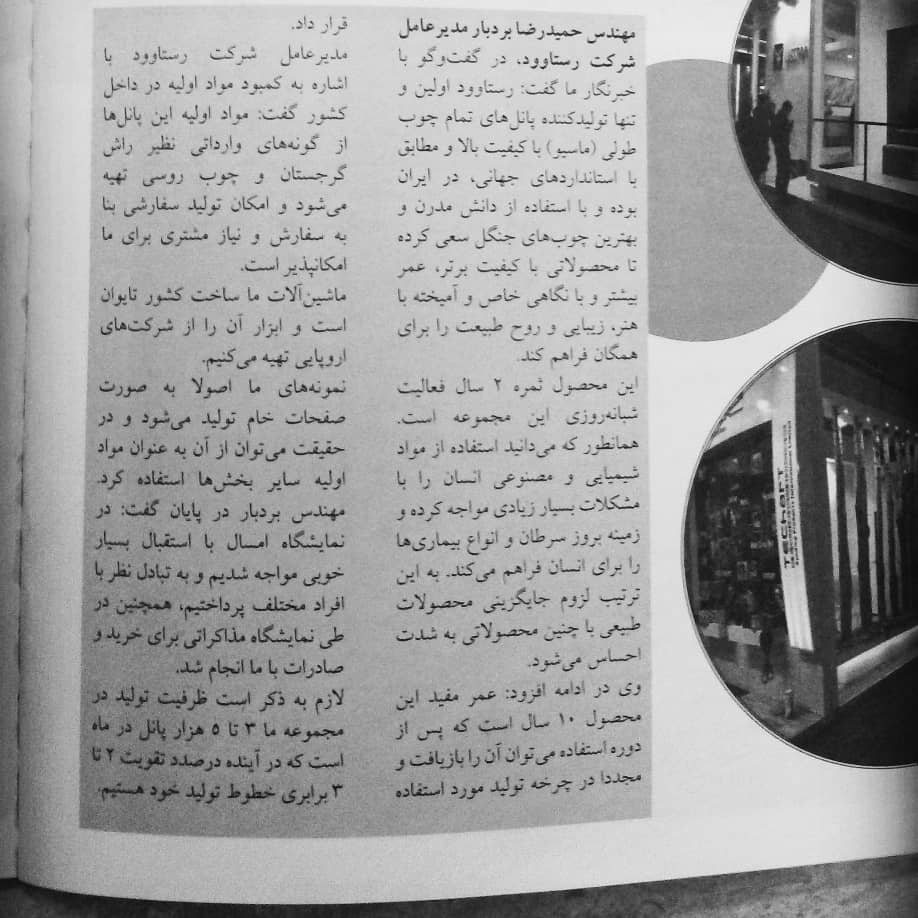 مهندس حمیدرضا بردبار مدیرعامل
شرکت رستاوود، در گفت‌وگو با
خبرنگار ما گفت: رستاوود اولین و
تنها تولیدکننده پانل‌های تمام چوب
طولی (ماسیو) با کیفیت بالا و مطابق
با استانداردهای جهانی، در ایران
بوده و با استفاده از دانش مدرن و
بهترین چوب‌های جنگل سعی کرده
تا محصولاتی با کیفیت برتر، عمر
بیشتر و با نگاهی خاص و آمیخته با
هنر، زیبایی و روح طبیعت را برای
همگان فراهم کند.
این محصول ثمره ۲ سال فعالیت
شبانه‌روزی این مجموعه است.
همانطور که می‌دانید استفاده از مواد
شیمیایی و مصنوعی انسان را با
مشکلات بسیار زیادی مواجه کرده و
زمینه بروز سرطان و انواع بیماری‌ها
را برای انسان فراهم می‌کند. به این
ترتیب لزوم جایگزینی محصولات
طبیعی با چنین محصولاتی به شدت
احساس می‌شود.
وی در ادامه افزود: عمر مفید این
محصول ۱۰ سال است که پس از
دوره استفاده می‌توان آن را بازیافت و
مجددا در چرخه تولید مورد استفاده
قرار داد.
مدیرعامل شرکت رستاوود با
اشاره به کمبود مواد اولیه در داخل
کشور گفت: مواد اولیه این پانل‌ها
از گونه‌های وارداتی نظیر راش
گرجستان و چوب روسی تهیه
می‌شود و امکان تولید سفارشی بنا
به سفارش و نیاز مشتری برای ما
امکانپذیر است.
ماشین‌آلات ما ساخت کشور تایوان
است و ابزار آن را از شرکت‌های
اروپایی تهیه می‌کنیم.
نمونه‌های ما اصولا به صورت
صفحات خام تولید می‌شود و در
حقیقت می‌توان از آن به عنوان مواد
اولیه سایر بخش‌ها استفاده کرد.
مهندس بردبار در پایان گفت: در
نمایشگاه امسال با استقبال بسیار
خوبی مواجه شدیم و به تبادل نظر با
افراد مختلف پرداختیم، همچنین در
طی نمایشگاه مذاکراتی برای خرید و
صادرات با ما انجام شد.
لازم به ذکر است ظرفیت تولید در
مجموعه ما ۳ تا ۵ هزار پانل در ماه
است که در آینده درصدد تقویت ۲ تا
۳ برابری خطوط تولید خود هستیم.
TECHART